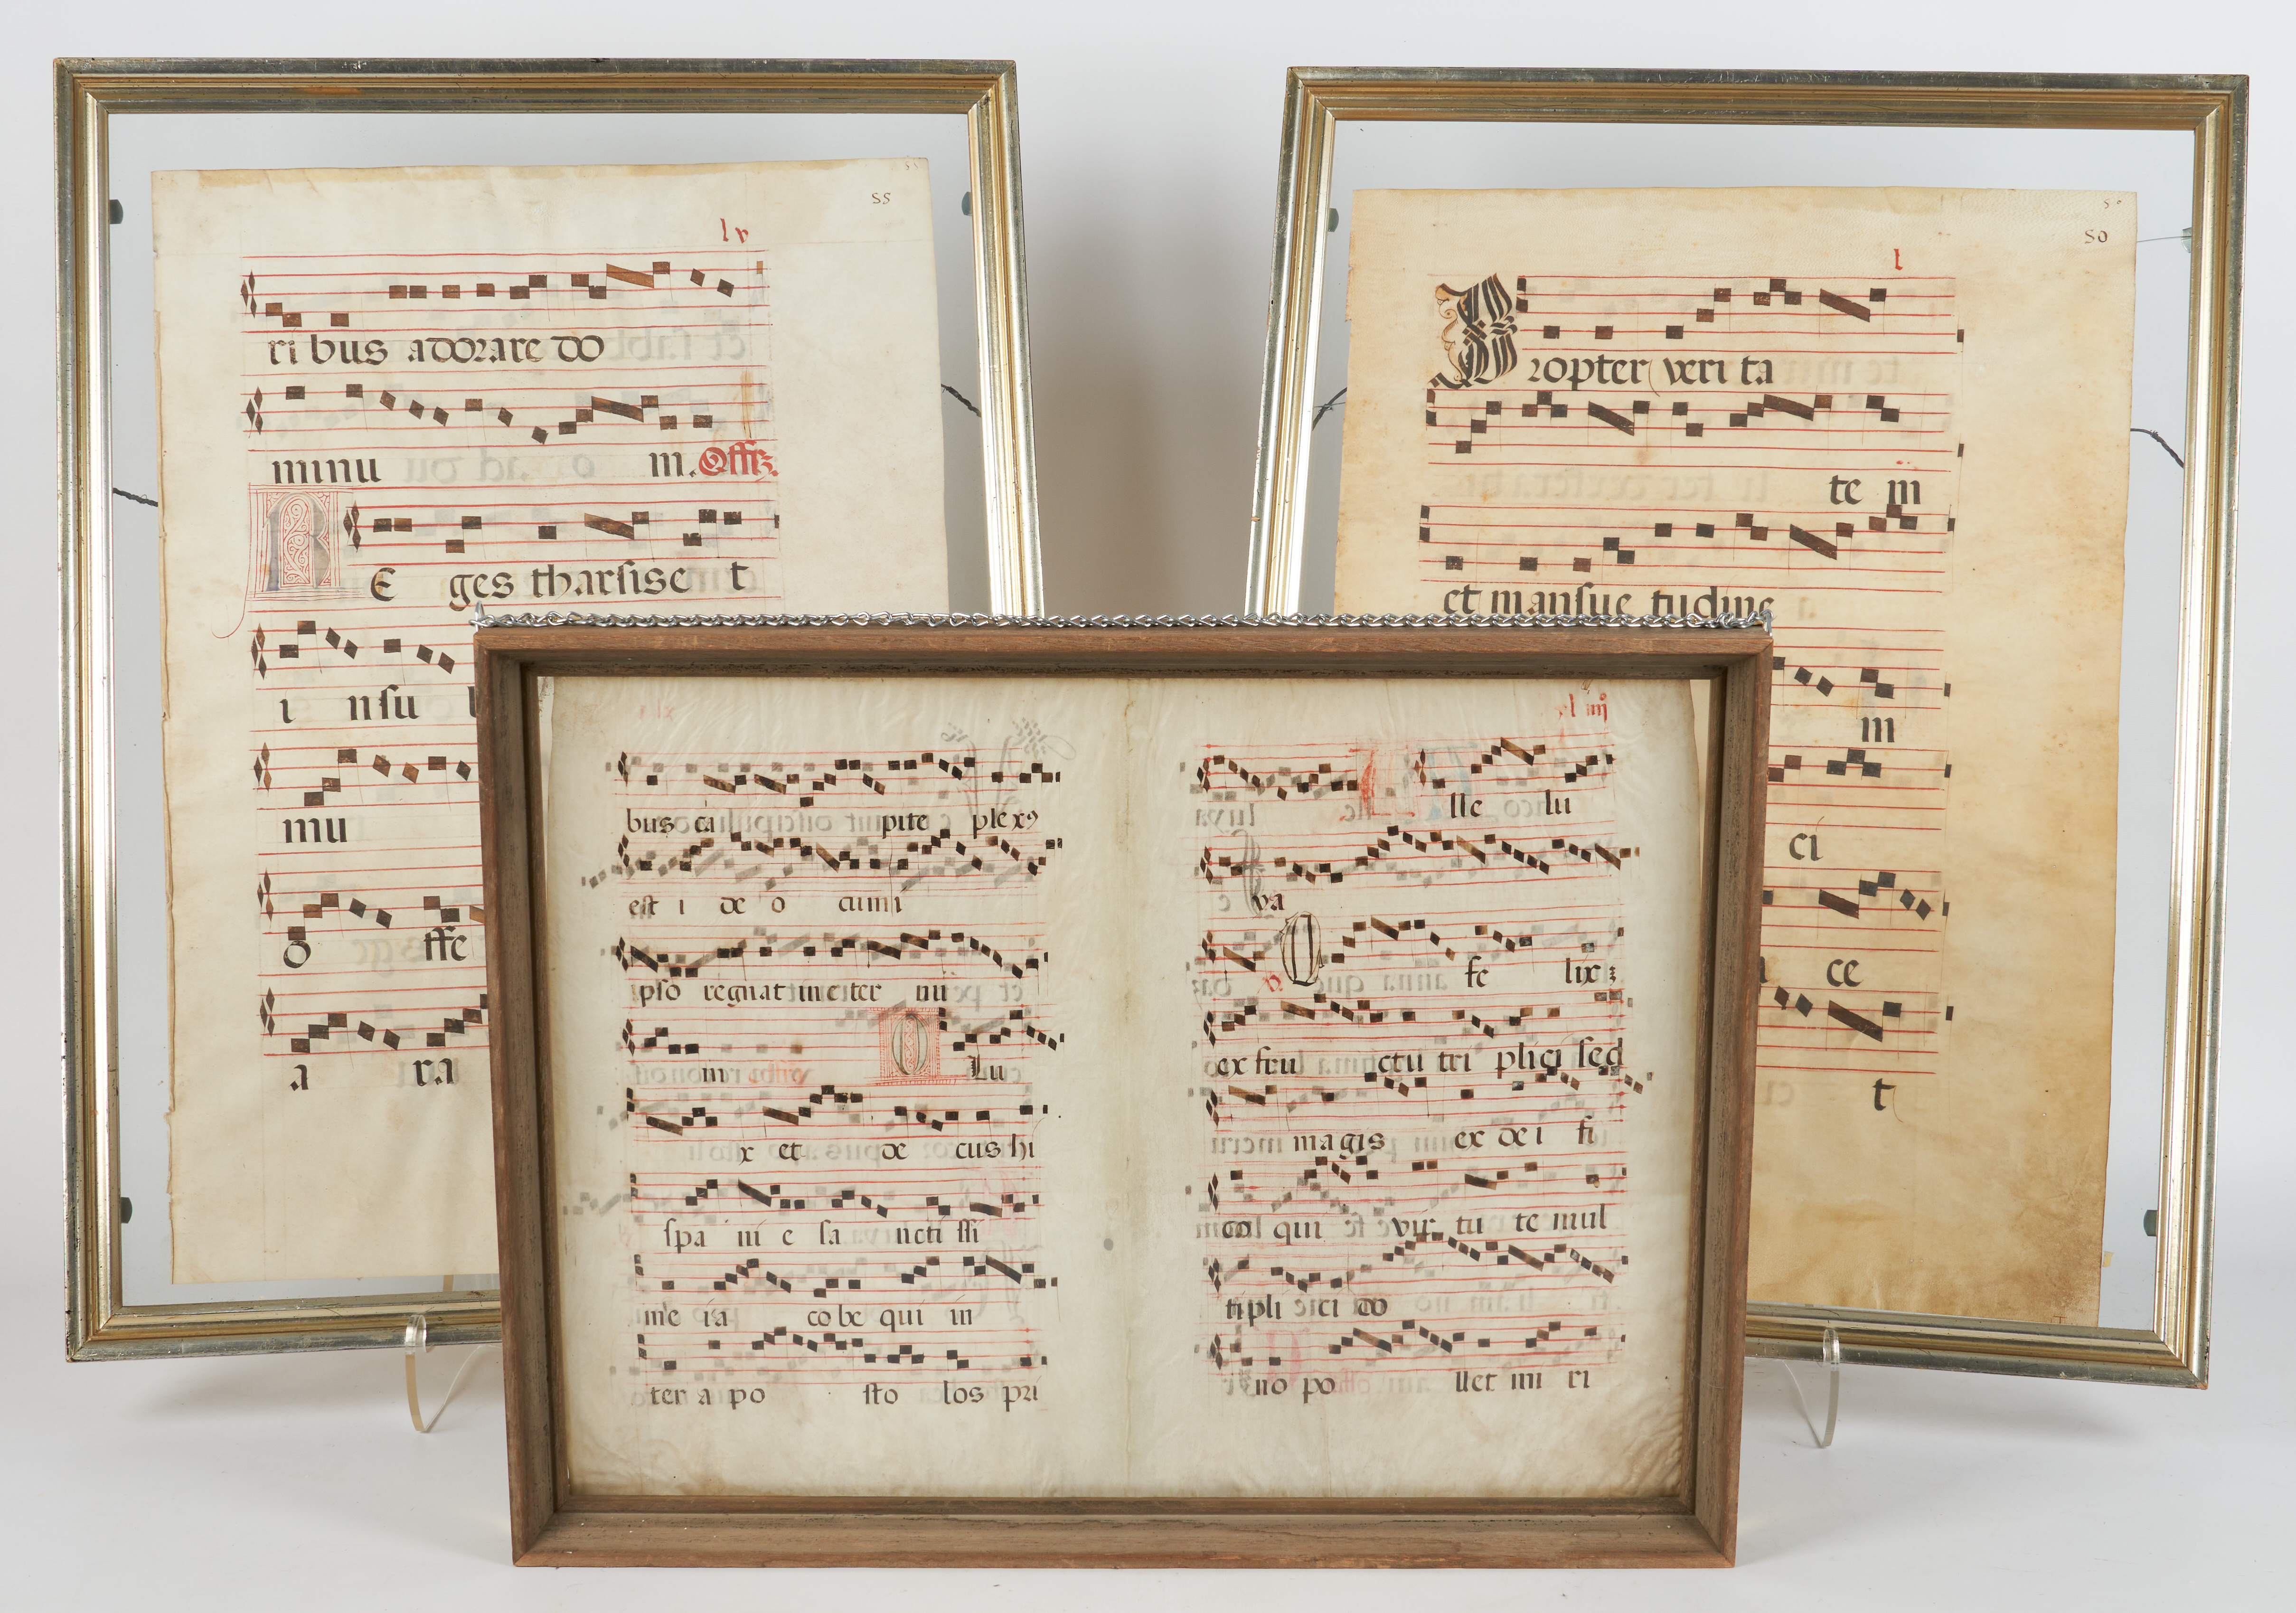 55
lv
ri bus adorare do
minu m. Offz.
R E ges tharsis e t
i nsu
mu
o ffe
a ra
50
l
P ropter veri ta
te m
et mansue tudine
m
ci
ce
t
bus ca pite plexꝯ
est i de o cum i
pso regnat in eter nu
m O Lu
x et de cus hi
spa ni e sa ncti ssi
me ia cobe qui in
ter a po sto los pri
xl iiij
lle lu
ya
O fe lix
ex fru ctu tri plici sed
magis ex dei fi
co qui vir tu te mul
tipli ci do
no po llet mi ri